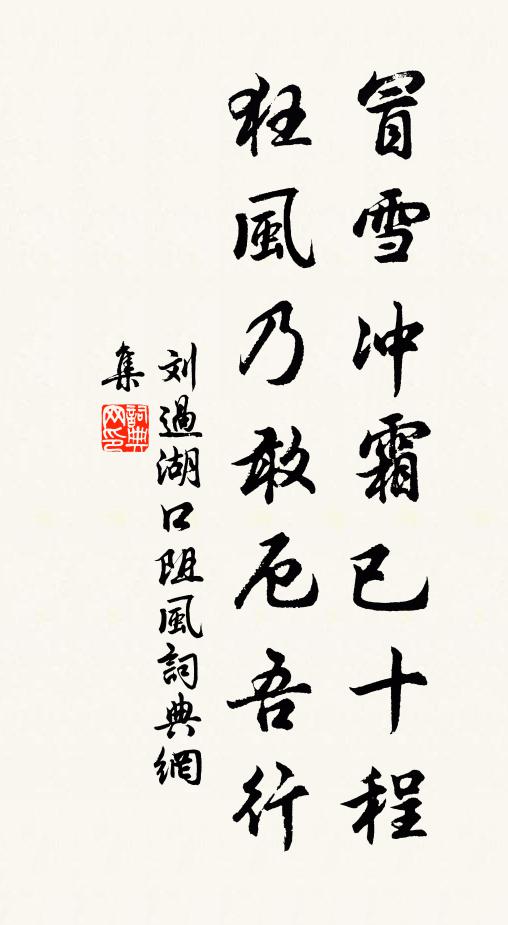 冒雪冲霜已十程
狂風乃敢厄吾行
刘過湖口阻風詞典網
集
詞典
网印